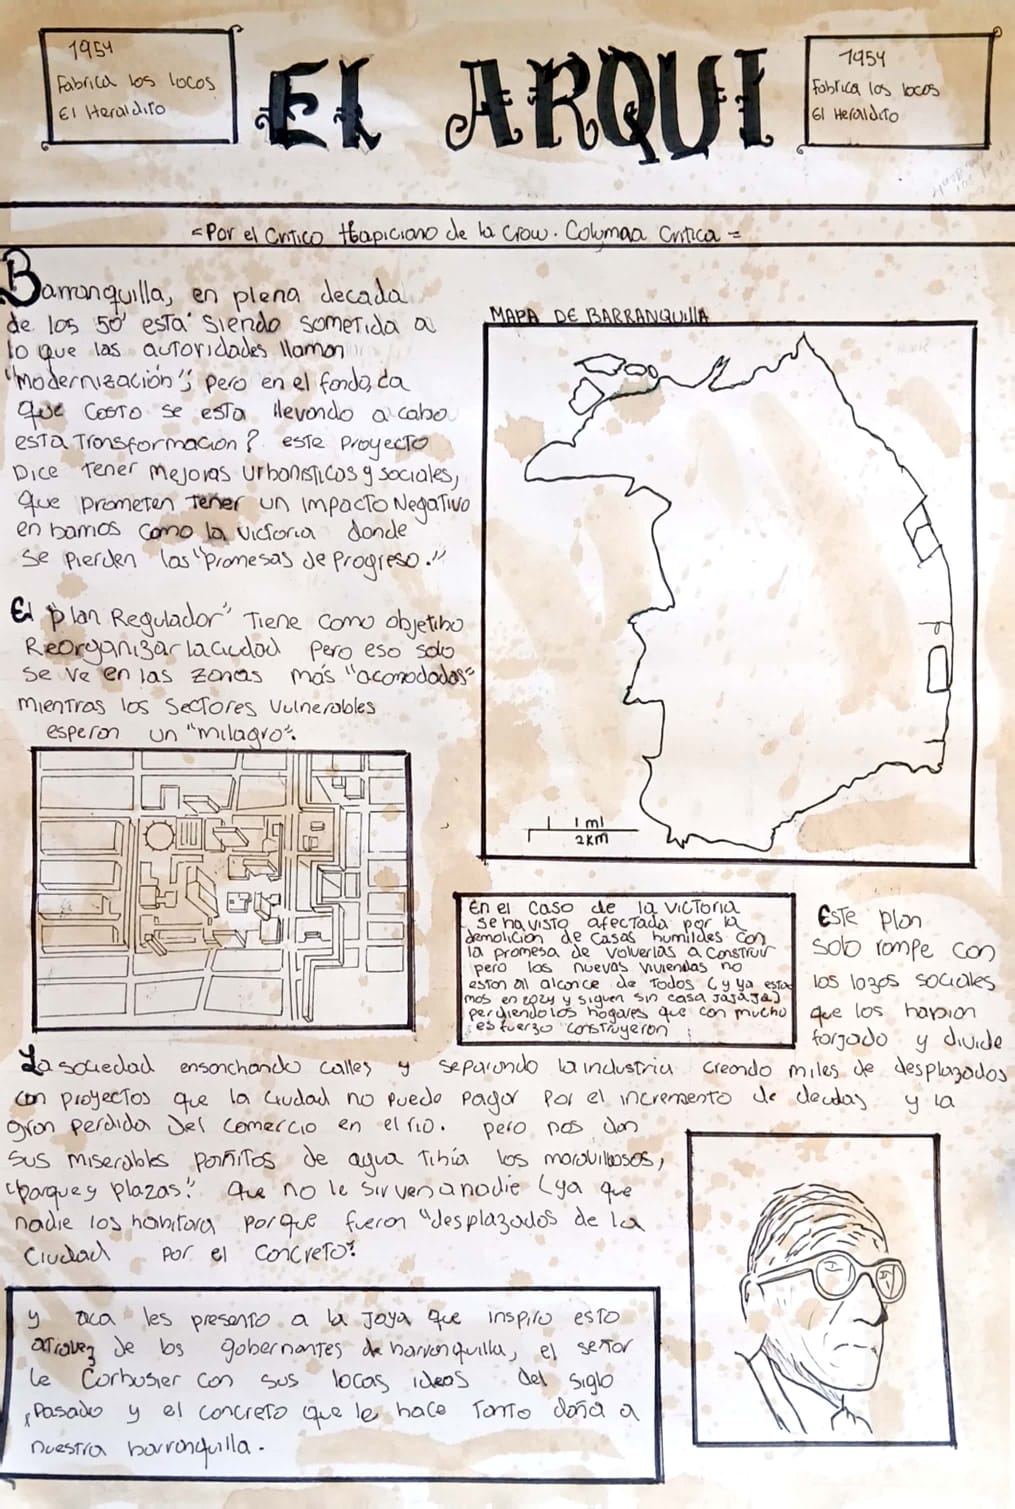 1954
Fabrica los locos
El Heraldito
EL ARQUI
1954
Fabrica los locos
El Heraldito
=Por el Critico Hapiciano de la Crow. Columna Critica =
Barranquilla, en plena decada
de los 50' esta siendo sometida a
lo que las autoridades llaman
"modernización"; pero en el fondo, ¿a
que costo se esta llevando a cabo
esta Transformacion? este proyecto
Dice tener mejoras urbanisticos y sociales,
que prometen tener un impacto Negativo
en barrios como la victoria donde
se pierden las "promesas de progreso."
El "plan Regulador" Tiene como objetibo
Reorganizar la ciudad pero eso solo
se ve en las zonas más "acomodadas"
mientras los sectores vulnerables
esperan un "milagro".
MAPA DE BARRANQUILLA
1 mi
2 km
En el caso de la victoria
se ha visto afectada por la
demolicion de casas humildes con
la promesa de volverlas a construir
pero los nuevas viviendas no
estan al alcance de todos (y ya esta
mos en 2024 y siguen sin casa jajaja)
perdiendo los hogares que con mucho
esfuerzo construyeron
Este plan
solo rompe con
los lazos sociales
que los habian
forjado y divide
La sociedad ensanchando calles y separando la industria creando miles de desplazados
con proyectos que la ciudad no puede pagar por el incremento de deudas y la
gran perdida del comercio en el rio. pero nos dan
sus miserables pañitos de agua tibia los maravillosos,
"parques y plazas". que no le sirven a nadie (ya que
nadie los habitara porque fueron "desplazados de la
ciudad por el concreto".
y aca les presento a la joya que inspiro esto
atravez de los gobernantes de barranquilla, el señor
le Corbusier con sus locas ideas del siglo
pasado y el concreto que le hace tanto daño a
nuestra barranquilla.